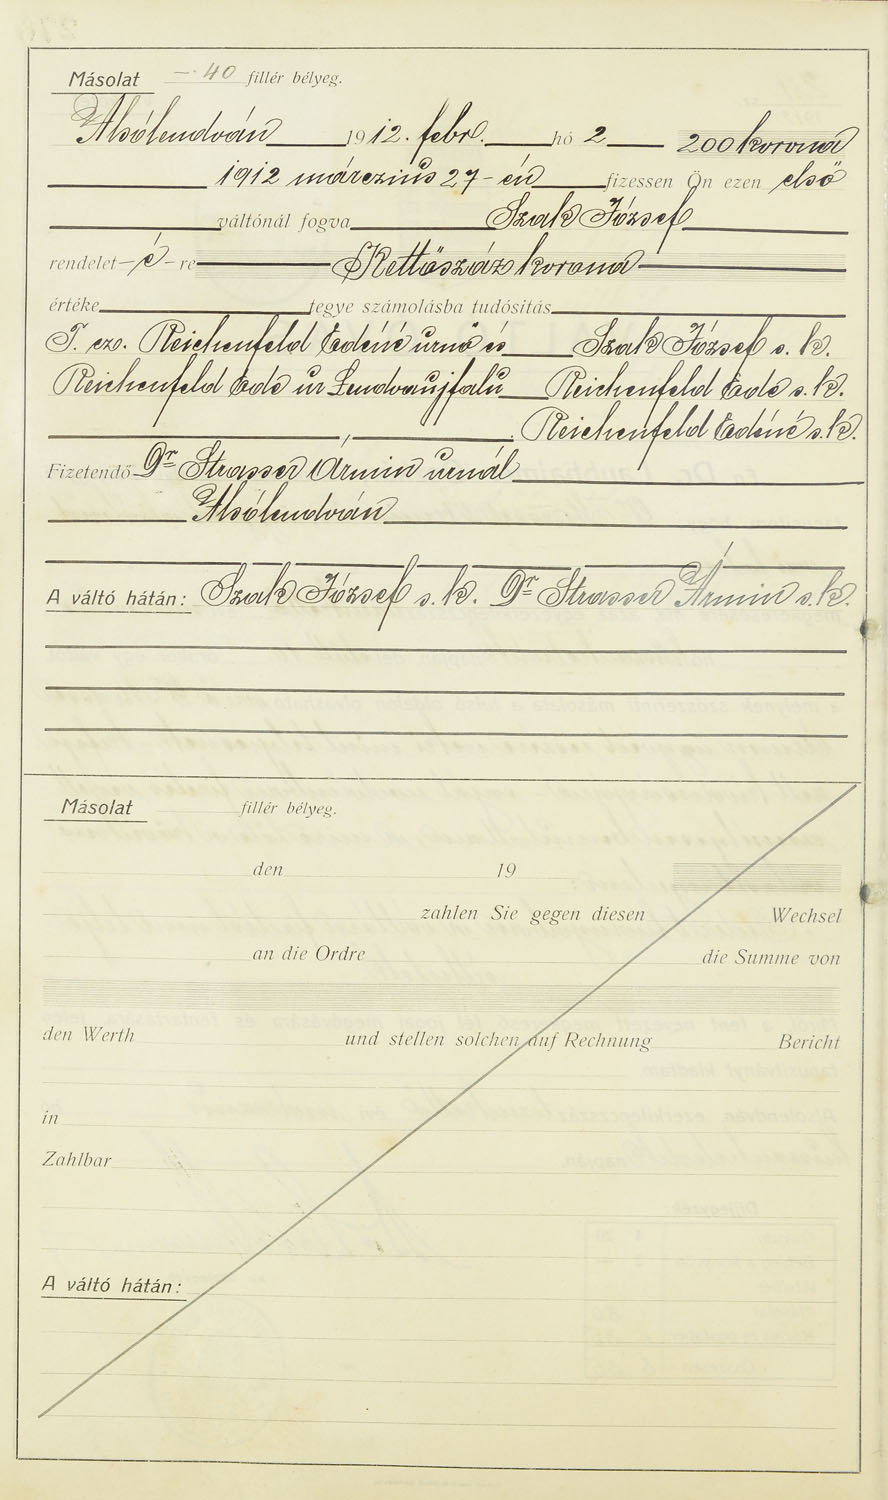 Másolat –·40 fillér bélyeg.
Alsólendván 1912. febr. hó 2 200 korona
1912 márczius 27-én fizessen Ön ezen első
váltónál fogva Szak József
rendelet–é–re Kettőszáz korona
értéke tegye számolásba tudósítás
T. cz. Reichenfeld Edéné úrnő és Szak József s. k.
Reichenfeld Ede úr Lendvaujfalu Reichenfeld Ede s. k.
Reichenfeld Edéné s. k.
Fizetendő Dr Strasser Ármin úrnál
Alsólendván
A váltó hátán: Szak József s. k. Dr Strasser Ármin s. k.
Másolat fillér bélyeg.
den 19
zahlen Sie gegen diesen Wechsel
an die Ordre die Summe von
den Werth und stellen solchen auf Rechnung Bericht
in
Zahlbar
A váltó hátán: